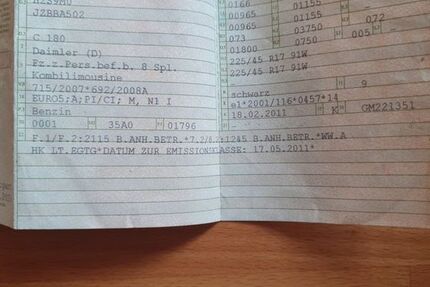 JZBBA502
C 180
Daimler (D)
Fz.z.Pers.bef.b. 8 Spl.
Kombilimousine
715/2007*692/2008A
EURO5;A;PI/CI; M, N1 I
Benzin
0001 35A0 01796
0166 01155 -
00965 01155 - 072
073 03750 005
01800 0750
225/45 R17 91W
225/45 R17 91W
schwarz 9
e1*2001/116*0457*14
18.02.2011 K GM221351
F.1/F.2:2115 B.ANH.BETR.*7.2/8.2:1245 B.ANH.BETR.*WW.A
HK LT.EGTG*DATUM ZUR EMISSIONSKLASSE: 17.05.2011*